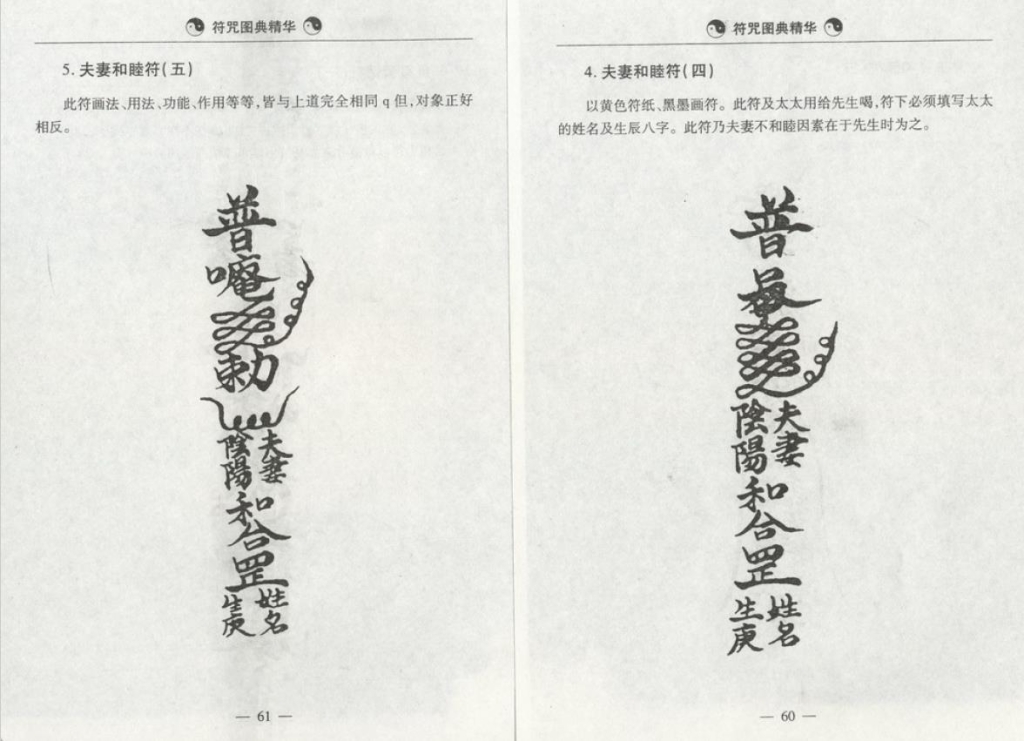 符咒图典精华
5. 夫妻和睦符(五)
此符画法、用法、功能、作用等等,皆与上道完全相同 q 但,对象正好
相反。
普
唵
勅
陰陽 夫妻
和
合
罡
生庚 姓名
— 61 —
符咒图典精华
4. 夫妻和睦符(四)
以黄色符纸、黑墨画符。此符及太太用给先生喝,符下必须填写太太
的姓名及生辰八字。此符乃夫妻不和睦因素在于先生时为之。
普
陰陽 夫妻
和
合
罡
生庚 姓名
— 60 —